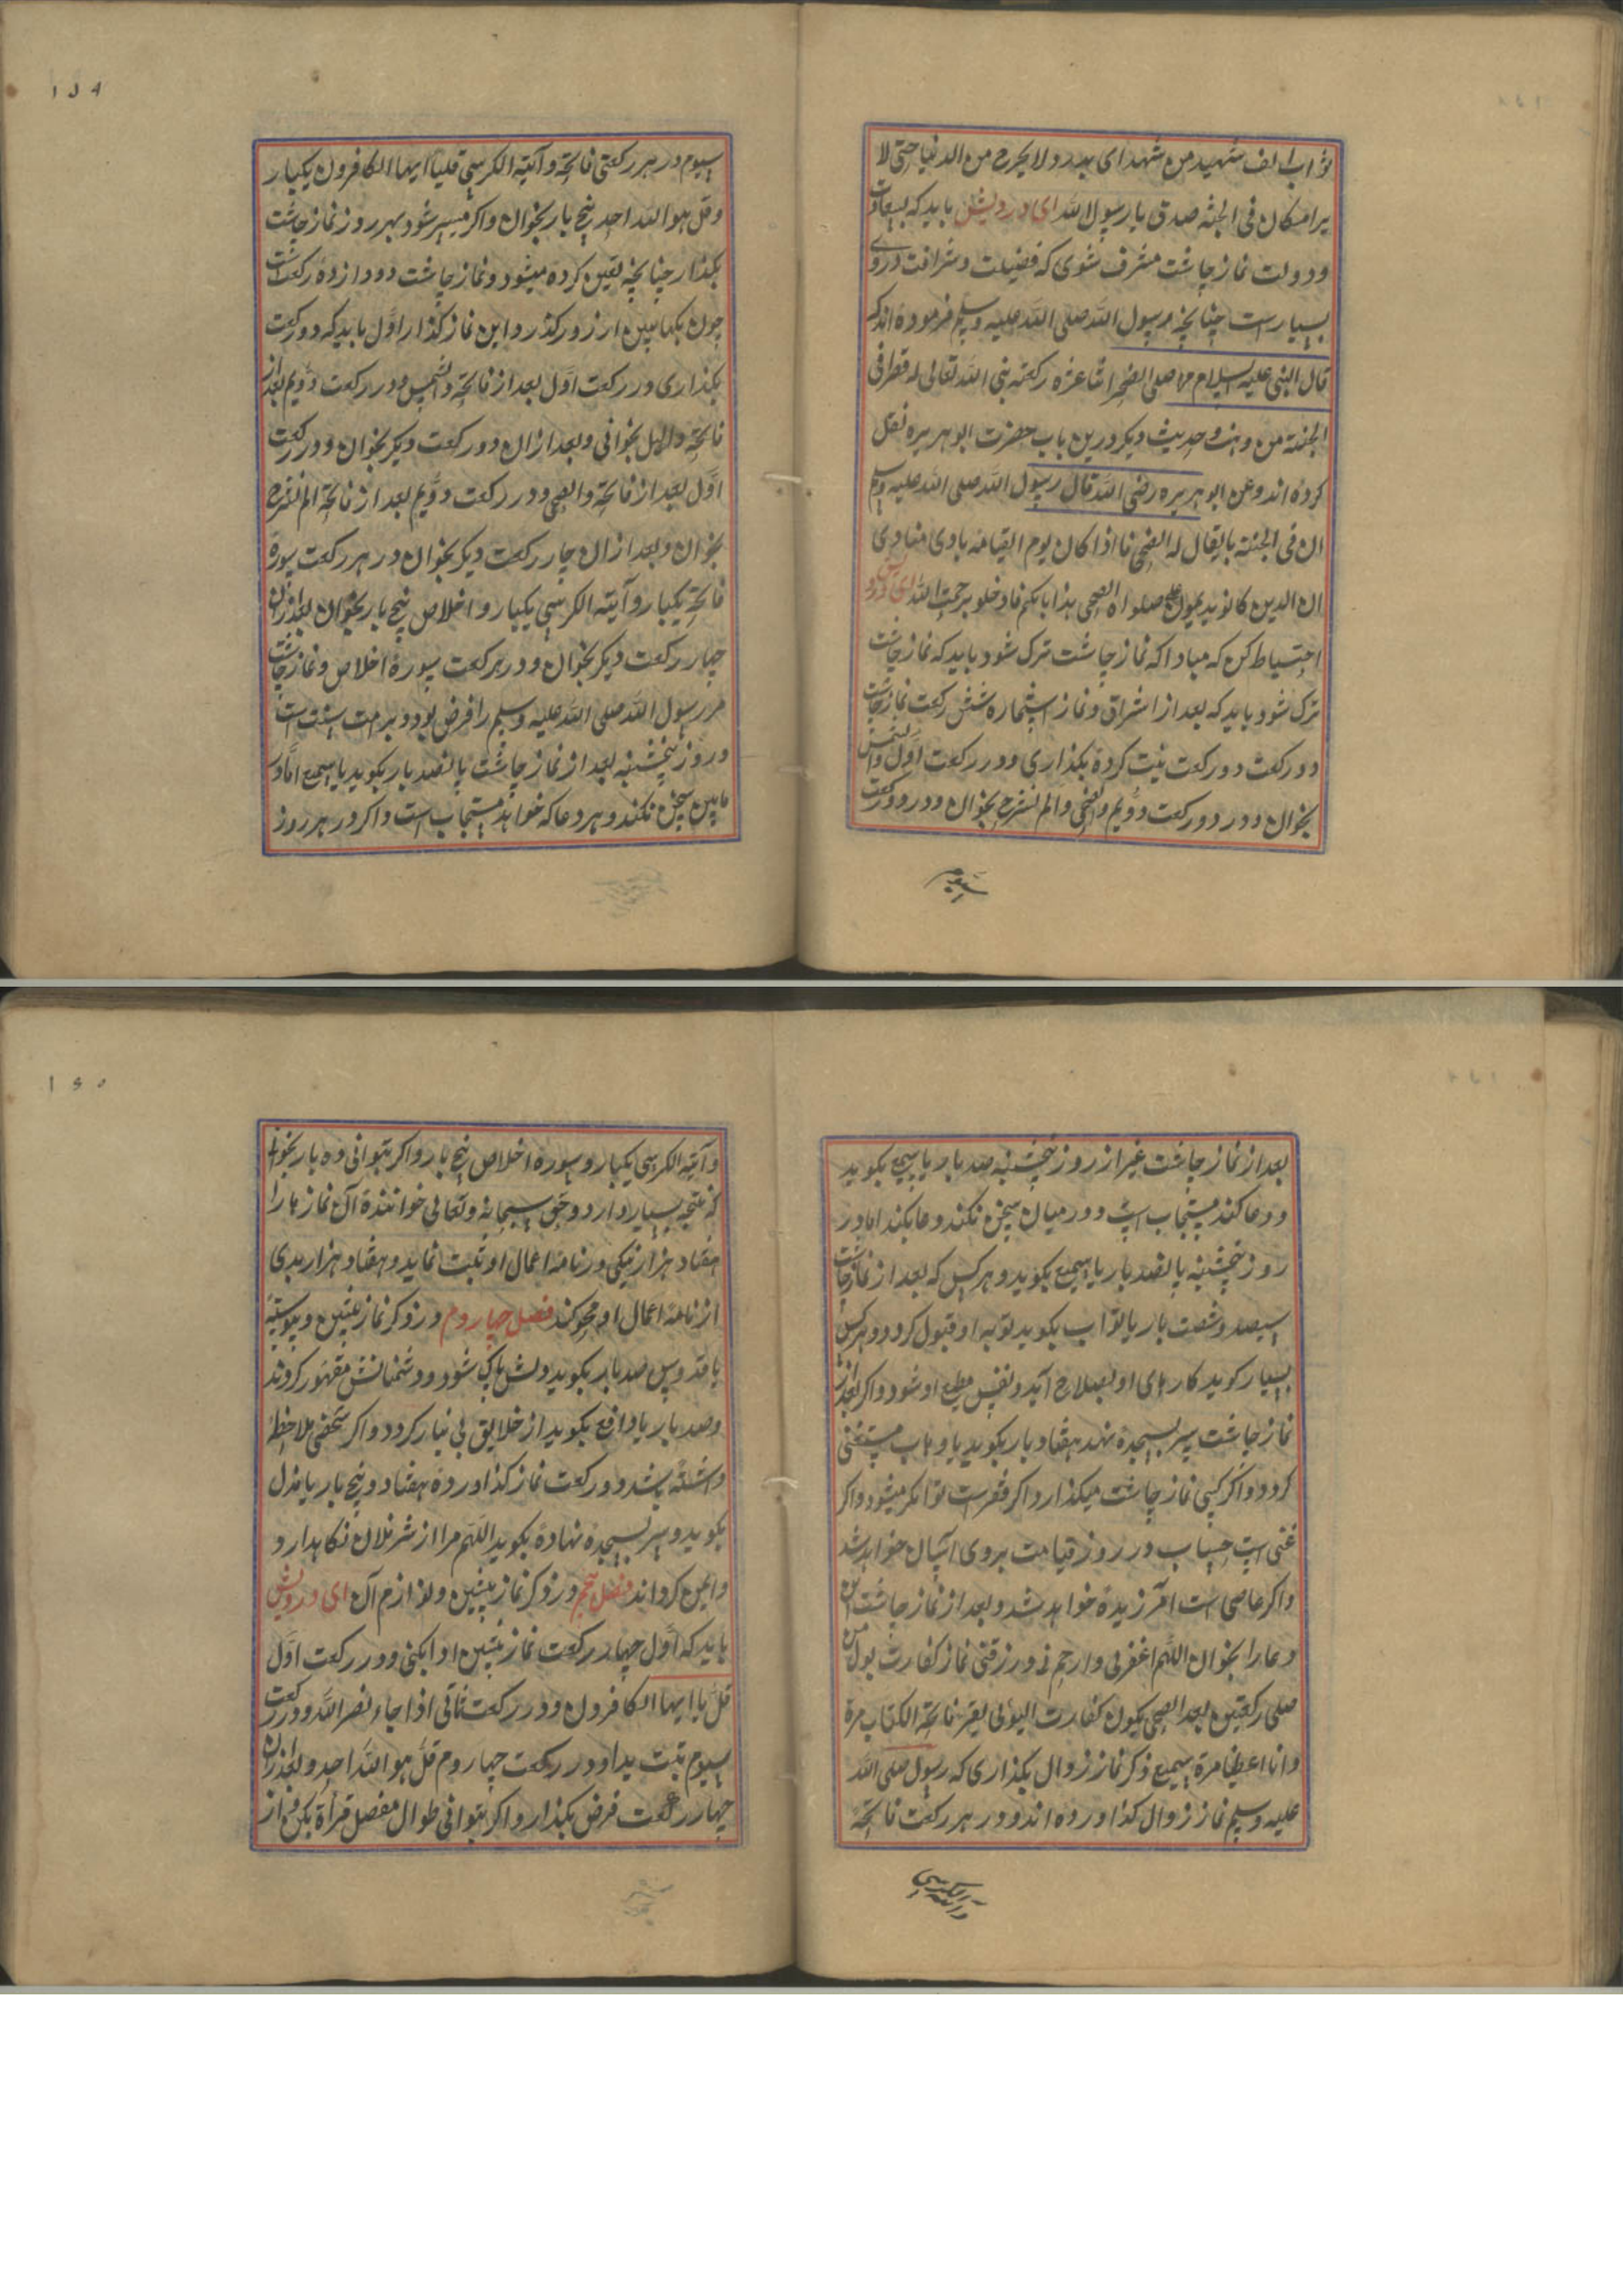 ثواب الف شهید من شهدای بدر و لا یخرج من الدنیا حتی لا
یرا مکان فی الجنة صدق یا رسول الله ای درویش باید که بسعادت
و دولت نماز چاشت مشرف شوی که فضیلت و شرافت در وی
بسیار است چنانچه رسول الله صلی الله علیه وسلم فرموده اند که
قال النبی علیه السلام من صلی الضحی اثنا عشره رکعته بنی الله تعالی له قطرا فی
الجنته من وحدیث دیگر درین باب حضرت ابو هریره نقل
کرده اند و عن ابو هریره رضی الله قال رسول الله صلی الله علیه وسلم
ان فی الجنته بابا یقال له الضحی فا اذا کان یوم القیامه نادی منادی
ان الدین کانو یدیمون علی صلواه الضحی هذا بابکم فادخلو برحمت الله ای درویش
احتسیاط کن که مبادا که نماز چاشت ترک شود باید که نماز چاشت
ترک شود باید که بعد از اشراق و نماز استخاره شش رکعت نماز چاشت
دو رکعت دو رکعت نیت کرده بکذاری و در رکعت اول والشمس
بخوان و در دو رکعت دویم والضحی و الم نشرح بخوان و در دو رکعت
سیوم
154
سیوم در هر رکعتی فاتحه و آیته الکرسی قلیا ایها الکافرون یکبار
و قل هو الله احد پنج بار بخوان و اکر میسر شود بهر روز نماز چاشت
بکذار چنانچه تعین کرده میشود و نماز چاشت دوازده رکعت است
چون یکپاس از روز کذرد این نماز کذار اول باید که دو رکعت
بکذاری در رکعت اول بعد از فاتحه والشمس و در رکعت دویم بعد از
فاتحه واللیل بخوانی و بعد از ان دو رکعت دیکر بخوان و در رکعت
اول بعد از فاتحه والضحی و در رکعت دویم بعد از فاتحه الم نشرح
بخوان و بعد از ان چار رکعت دیکر بخوان در هر رکعت سوره
فاتحه یکبار و آیته الکرسی یکبار و اخلاص پنج بار بخوان بعد از ان
چهار رکعت دیکر بخوان و در هر رکعت سوره اخلاص و نماز چاشت
مر رسول الله صلی الله علیه وسلم را فرض بود و بر امت سنت است
و روز پنجشنبه بعد از نماز چاشت پانصد بار بکوید یا سمیع اما در
مابین سخن نکند و هر دعا که خواهد مستجاب است و اکر در هر روز
بعد از نماز چاشت غیر از روز پنجشنبه صد بار یا سمیع بکوید
و دعا کند مستجاب است و در میان سخن نکند و دعا بکند اما در
روز پنجشنبه پانصد بار یا سمیع بکوید و هر کس که بعد از نماز چاشت
سیصد و شصت بار یا تواب بکوید توبه او قبول کردد و هر کس
بسیار کوید کارهای او بصلاح آید و نفس مطیع او شود و اکر بعد از
نماز چاشت سر بسجده نهد هفتاد بار بکوید یا وهاب مستغنی
کردد و اکر کسی نماز چاشت میکذارد اکر فقیر است توانکر میشود و اکر
غنی است حساب در روز قیامت بر وی آسان خواهد شد
و اکر عاصی است آمرزیده خواهد شد و بعد از نماز چاشت این
دعا را بخوان اللهم اغفرلی وارحم نی ورزقنی نماز کفارت بول من
صلی رکعتین بعد الضحی یکون کفارت البول یقرء فاتحة الکتاب مرة
و انا اعطینا مرة سمیع ذکر نماز زوال بکذاری که رسول صلی الله
علیه وسلم نماز زوال کذاورده اند و در هر رکعت فاتحه
وآیته الکرسی
150
و آیته الکرسی یکبار و سوره اخلاص پنج بار و اکر بتوانی ده بار بخوان
که نتیجه بسیار دارد و حق سبحانه و تعالی خواننده آن نماز ها را
هفتاد هزار نیکی در نامه اعمال او ثبت نماید و هفتاد هزار بدی
از نامه اعمال او محو کند فصل چهاروم در ذکر نماز پیشین و پوسته
یا قدوس صد بار بکوید دلش پاک شود و دشمنانش مقهور کردند
و صد بار یا دافع بکوید از خلایق بی نیاز کردد و اکر شخصی ملاحظه
داشته باشد دو رکعت نماز کذاورده هفتاد و پنج بار یا مذل
بکوید و سر بسجده نهاده بکوید اللهم مرا از شر فلان نکاهدار و
و ایمن کرداند فصل پنجم در ذکر نماز پیشین و لوازم آن ای درویش
باید که اول چهار رکعت نماز پیشین ادا بکنی و در رکعت اول
قل یا ایها الکافرون و در رکعت ثانی اذا جاء نصر الله و در رکعت
سیوم تبت یدا و در رکعت چهاروم قل هو الله احد و بعد از ان
چهار رکعت فرض بکذار و اکر بتوانی طوال مفصل قرأة بکن و از